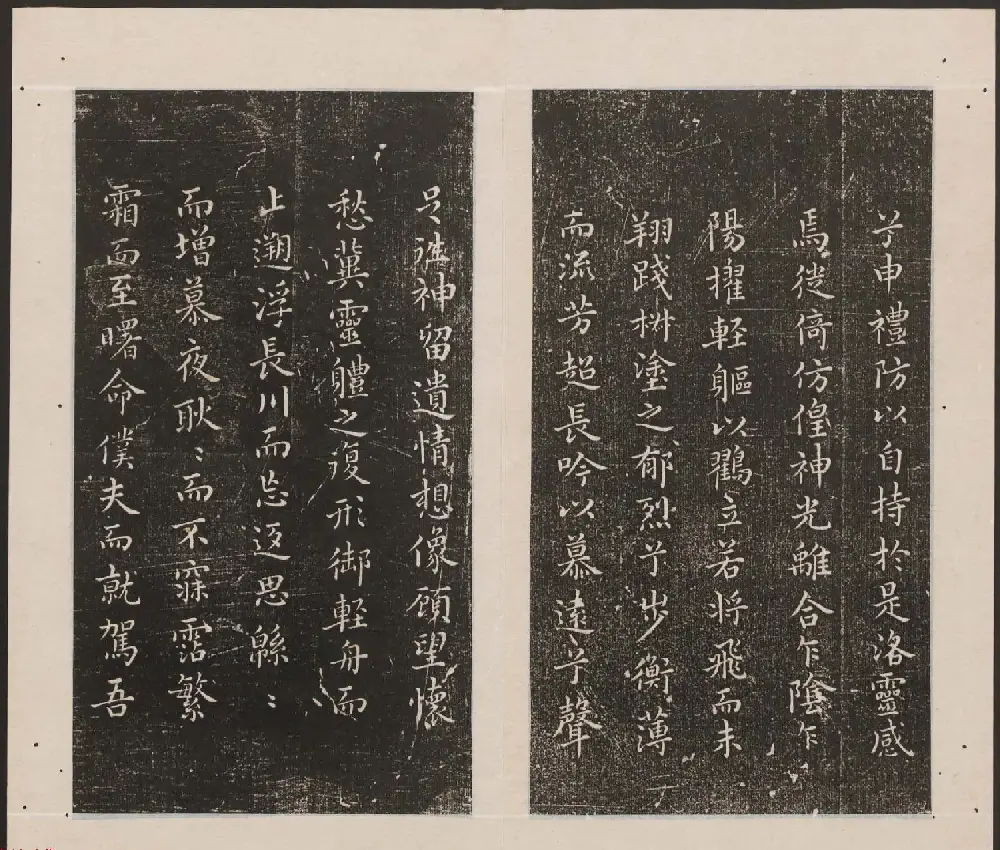 兮申禮防以自持於是洛靈感
焉徙倚仿偟神光離合乍陰乍
陽擢輕軀以鶴立若將飛而未
翔踐椒塗之郁烈兮步衡薄
而流芳超長吟以慕遠兮聲
足往神留遺情想像顧望懷
愁冀靈軆之復形御輕舟而
上遡浮長川而忘返思緜〻
而增慕夜耿〻而不寐霑繁
霜而至曙命僕夫而就駕吾